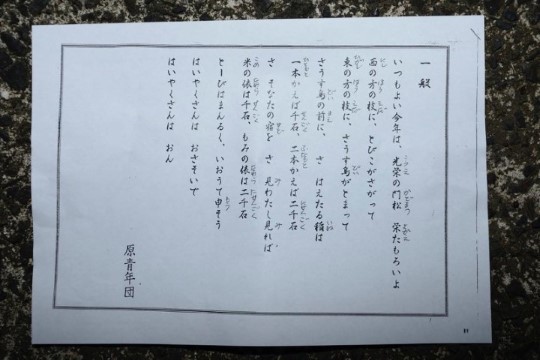 一般
いつもよい今年は、光栄の門松 栄たもろいよ
西の方の枝に、とびこがさがって
東の方の枝に、さうす鳥がとまって
さうす鳥の前に、 さ はえたる稲は
一本かえば千石、二本かえば二千石
さ そなたの宿を さ 見わたし見れば、
米の俵は千石、もみの俵は二千石
とーびはまんるく、いおうて申そう
はいやくさんは おさそいで
はいやくさんは おん
原青年団